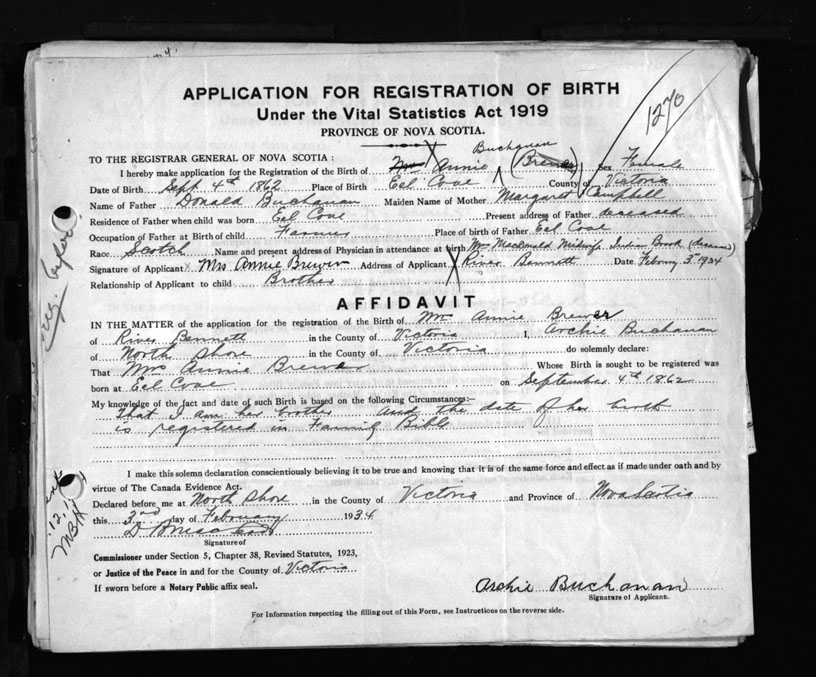 APPLICATION FOR REGISTRATION OF BIRTH
1270
Under the Vital Statistics Act 1919
PROVINCE OF NOVA SCOTIA.
Buchanan
TO THE REGISTRAR GENERAL OF NOVA SCOTIA:
I hereby make application for the Registration of the Birth of Mrs Annie (Brewer) Sex Female
Date of Birth Sept 4th 1862 Place of Birth Eel Cove County of Victoria
Name of Father Donald Buchanan Maiden Name of Mother Margaret Campbell
Residence of Father when child was born Eel Cove Present address of Father deceased
Occupation of Father at Birth of child Farmer Place of birth of Father Eel Cove
Race Scotch Name and present address of Physician in attendance at birth Mrs MacDonald Midwife Indian Brook (deceased)
Signature of Applicant Mrs Annie Brewer Address of Applicant River Bennett Date February 3rd 1934
Relationship of Applicant to child Brother
AFFIDAVIT
IN THE MATTER of the application for the registration of the Birth of Mrs Annie Brewer
of River Bennett in the County of Victoria I, Archie Buchanan
of North Shore in the County of Victoria do solemnly declare:
That Mrs Annie Brewer Whose Birth is sought to be registered was
born at Eel Cove on September 4th 1862
My knowledge of the fact and date of such Birth is based on the following Circumstances:—
That I am her brother and the date of her birth
is registered in Family Bible
I make this solemn declaration conscientiously believing it to be true and knowing that it is of the same force and effect as if made under oath and by
virtue of The Canada Evidence Act.
Declared before me at North Shore in the County of Victoria and Province of Nova Scotia
this 3rd day of February 1934
D
Signature of
Commissioner under Section 5, Chapter 38, Revised Statutes, 1923,
or Justice of the Peace in and for the County of Victoria
If sworn before a Notary Public affix seal.
Archie Buchanan
Signature of Applicant.
For Information respecting the filling out of this Form, see Instructions on the reverse side.